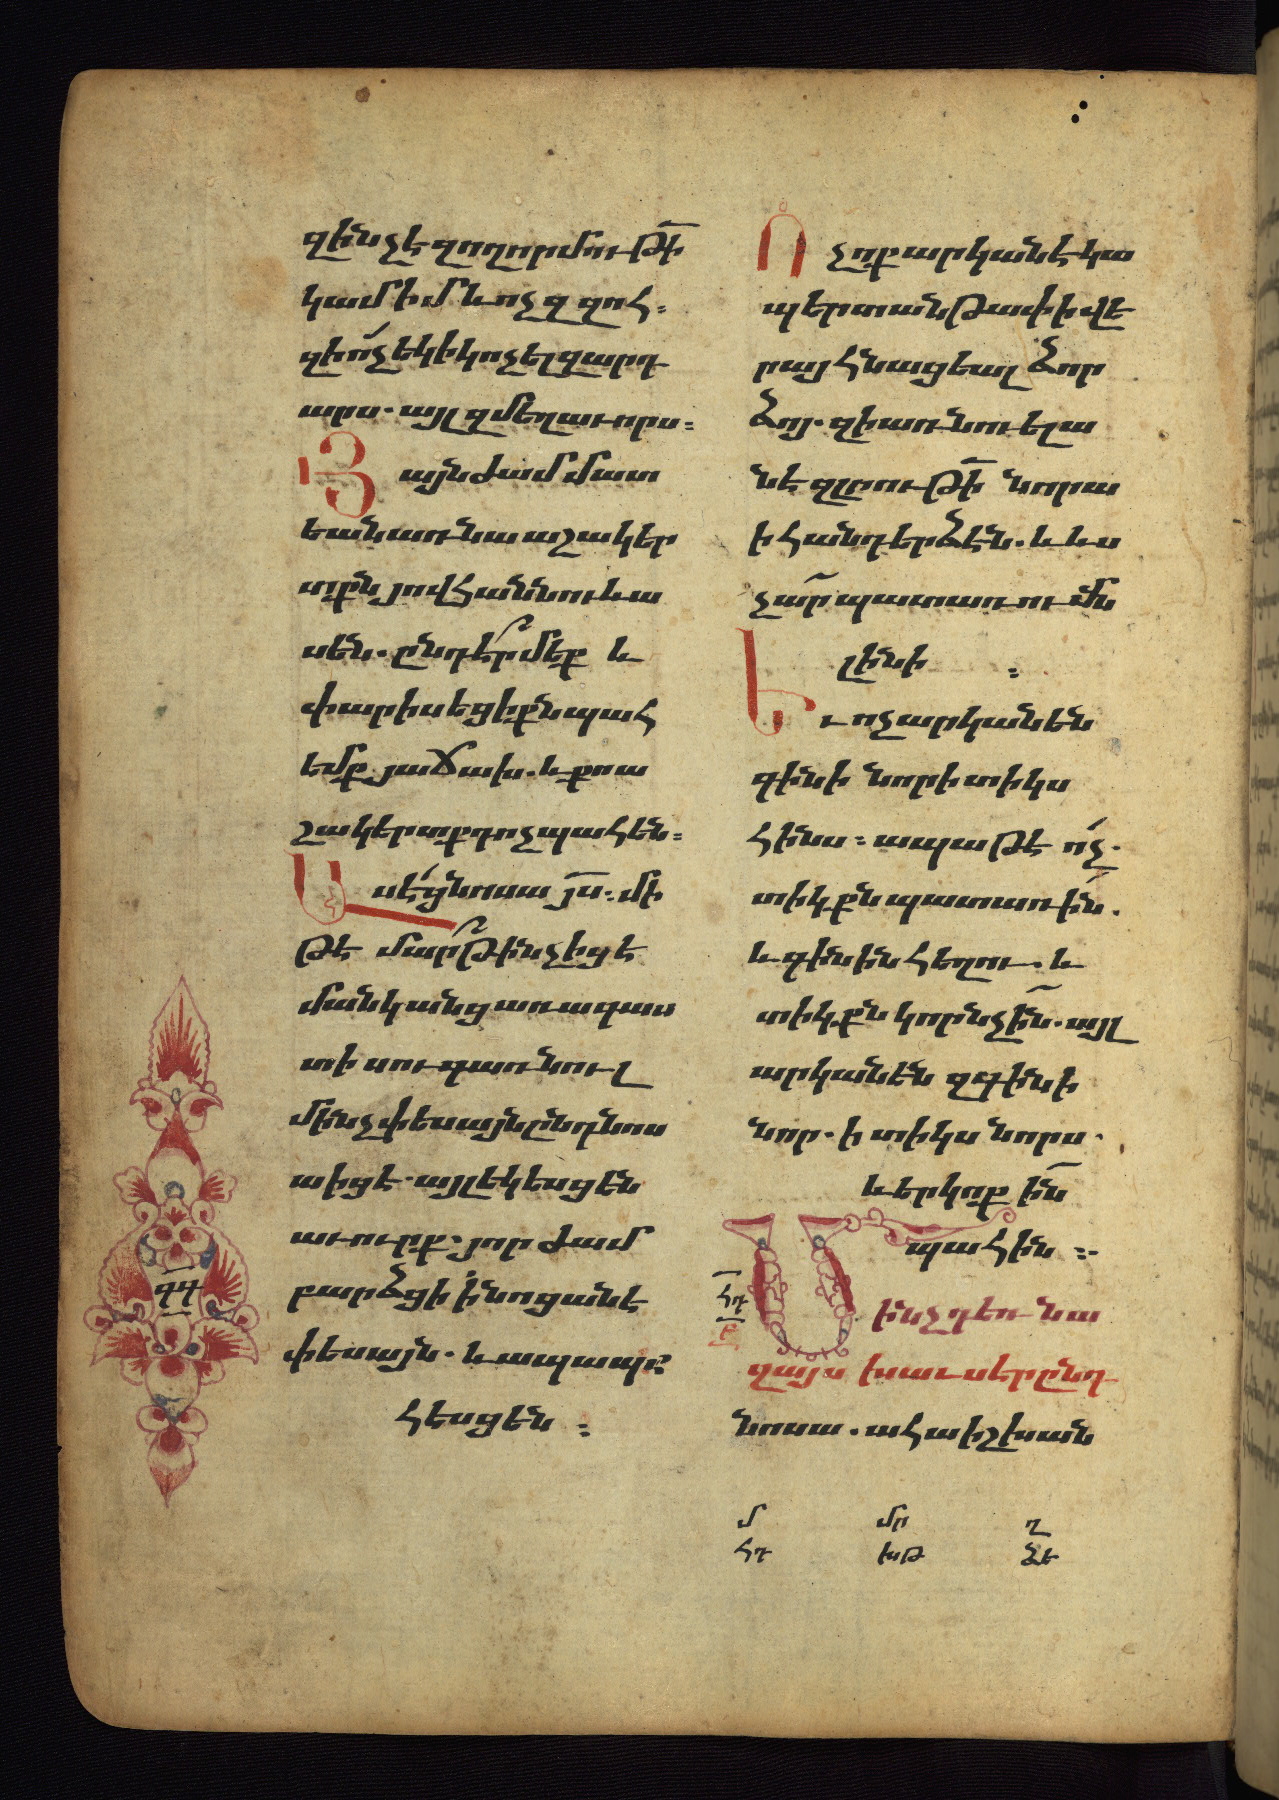 զինչ է զողորմութի
կամիմ և ոչ զզոհ։
զի ո՛չ եկի կոչել զարդ
արս. այլ զմեղաւորս։
Յայնժամ մատ
եան առ նա աշակեր
տքն յովհաննու և ա
սեն. ընդէ՞ր մեք և
փարիսեցիքն պահ
եմք յաճախ. և քո ա
շակերտքդ ոչ պահեն։
Ասէ ցնոսա յս։ մի
թէ մա՞րթ ինչ իցե
մանկանց առագաս
տի սուգ առնուլ
մինչ փեսայն ընդ նոս
ա իցե. այլ եկեսցեն
աւուրք. յորժամ
բարձցի ի նոցանէ
փեսայն. և ապա պա
հեսցեն ։
Ոչ ոք արկանէ կա
պերտ անթափ ի վե
րայ հնացեալ ձոր
ձոյ. զի առնու ելա
նէ զլրութի նորա
ի հանդերձէն. և ևս
չար պատառումն
լինի ։
Եւ ոչ արկանեն
գինի նոր ի տիկս
հինս ։ ապա թէ ո՛չ.
տիկքն պատառին.
և գինին հեղու. և
տիկքն կորնչին. այլ
արկանեն զգինի
նոր. ի տիկս նորս.
և երկոքին
պահին ։
Մինչդեռ նա
զայս խաւսեր ընդ
նոսա. ահա իշխան
հդ
բ
գդ
մ մր ղ
հդ խթ ձե